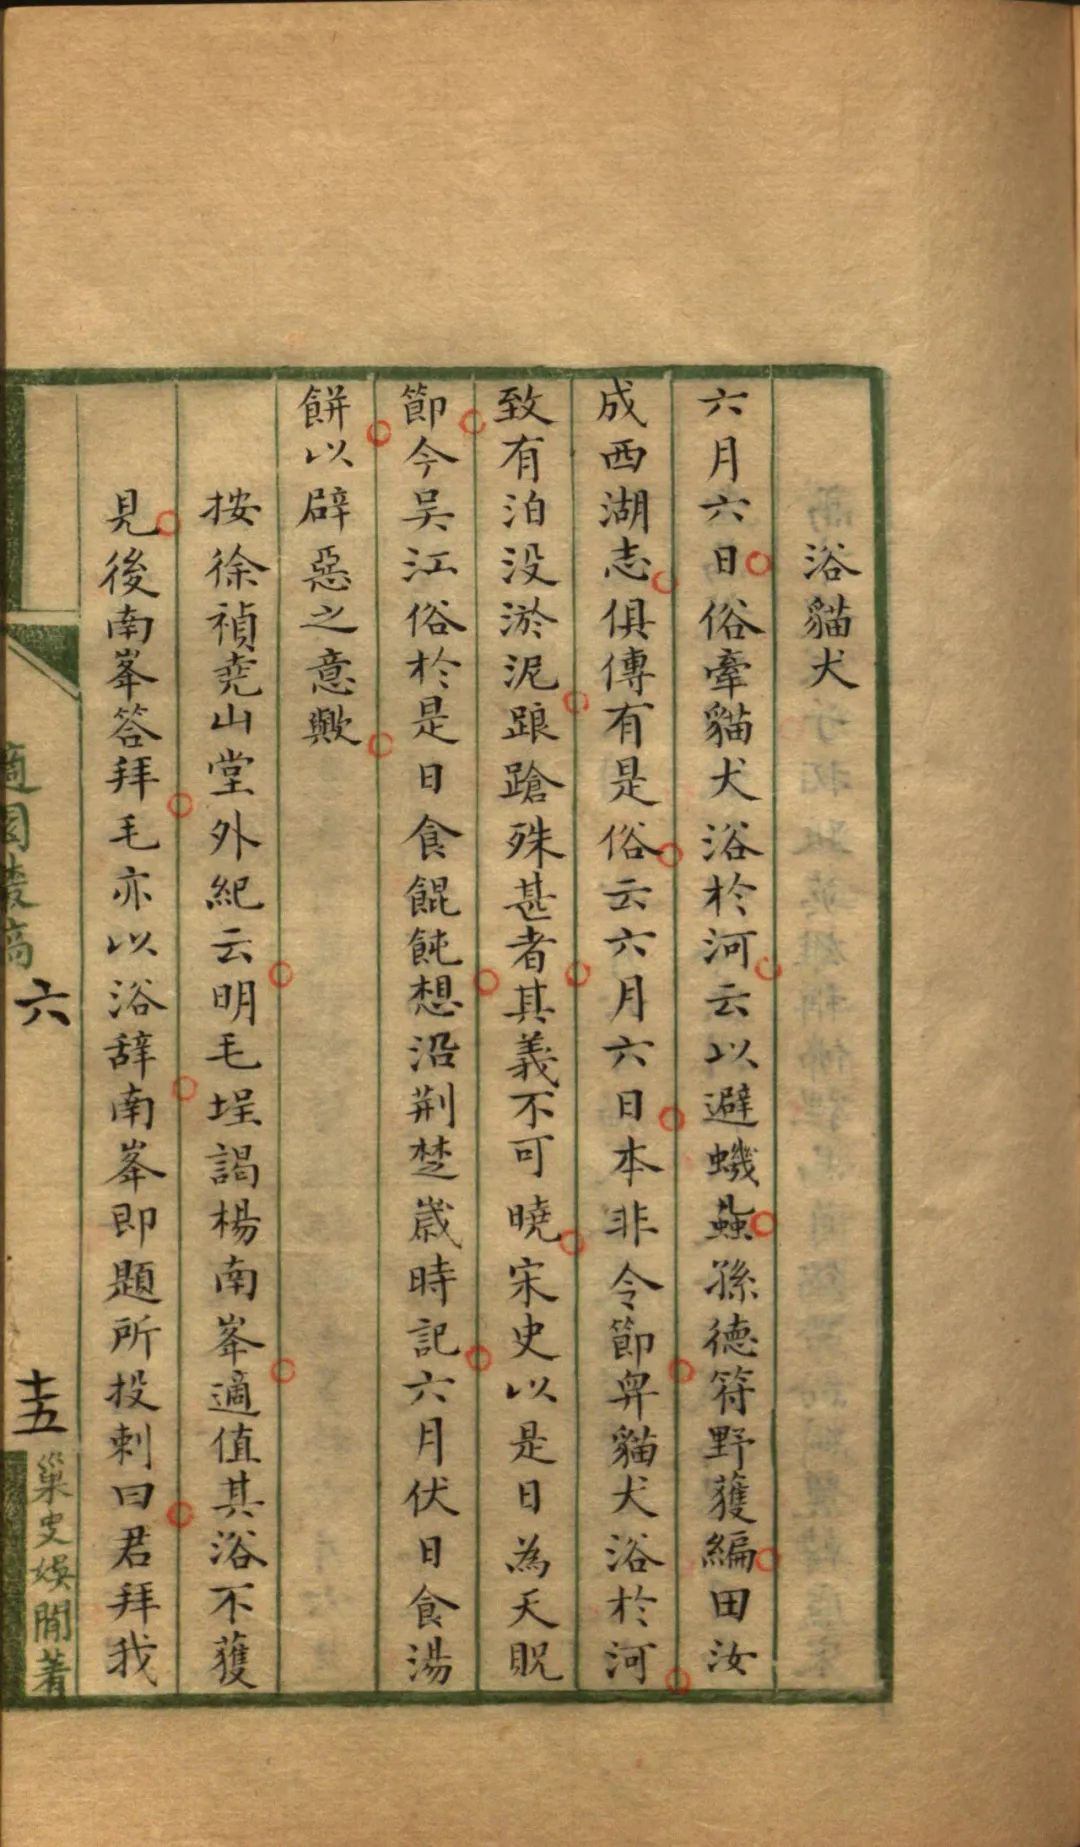 浴貓犬
六月六日俗牽貓犬浴於河云以避蟣蝨孫德符野獲編田汝
成西湖志俱傳有是俗云六月六日本非令節畀貓犬浴於河
致有泊没淤泥踉蹌殊甚者其義不可曉宋史以是日為天貺
節今吴江俗於是日食餛飩想沿荆楚歲時記六月伏日食湯
餅以辟惡之意歟
按徐禎堯山堂外紀云明毛埕謁楊南峯適值其浴不獲
見後南峯答拜毛亦以浴辞南峯即題所投刺曰君拜我
適園叢稿
六
十五
巢史娛閒著